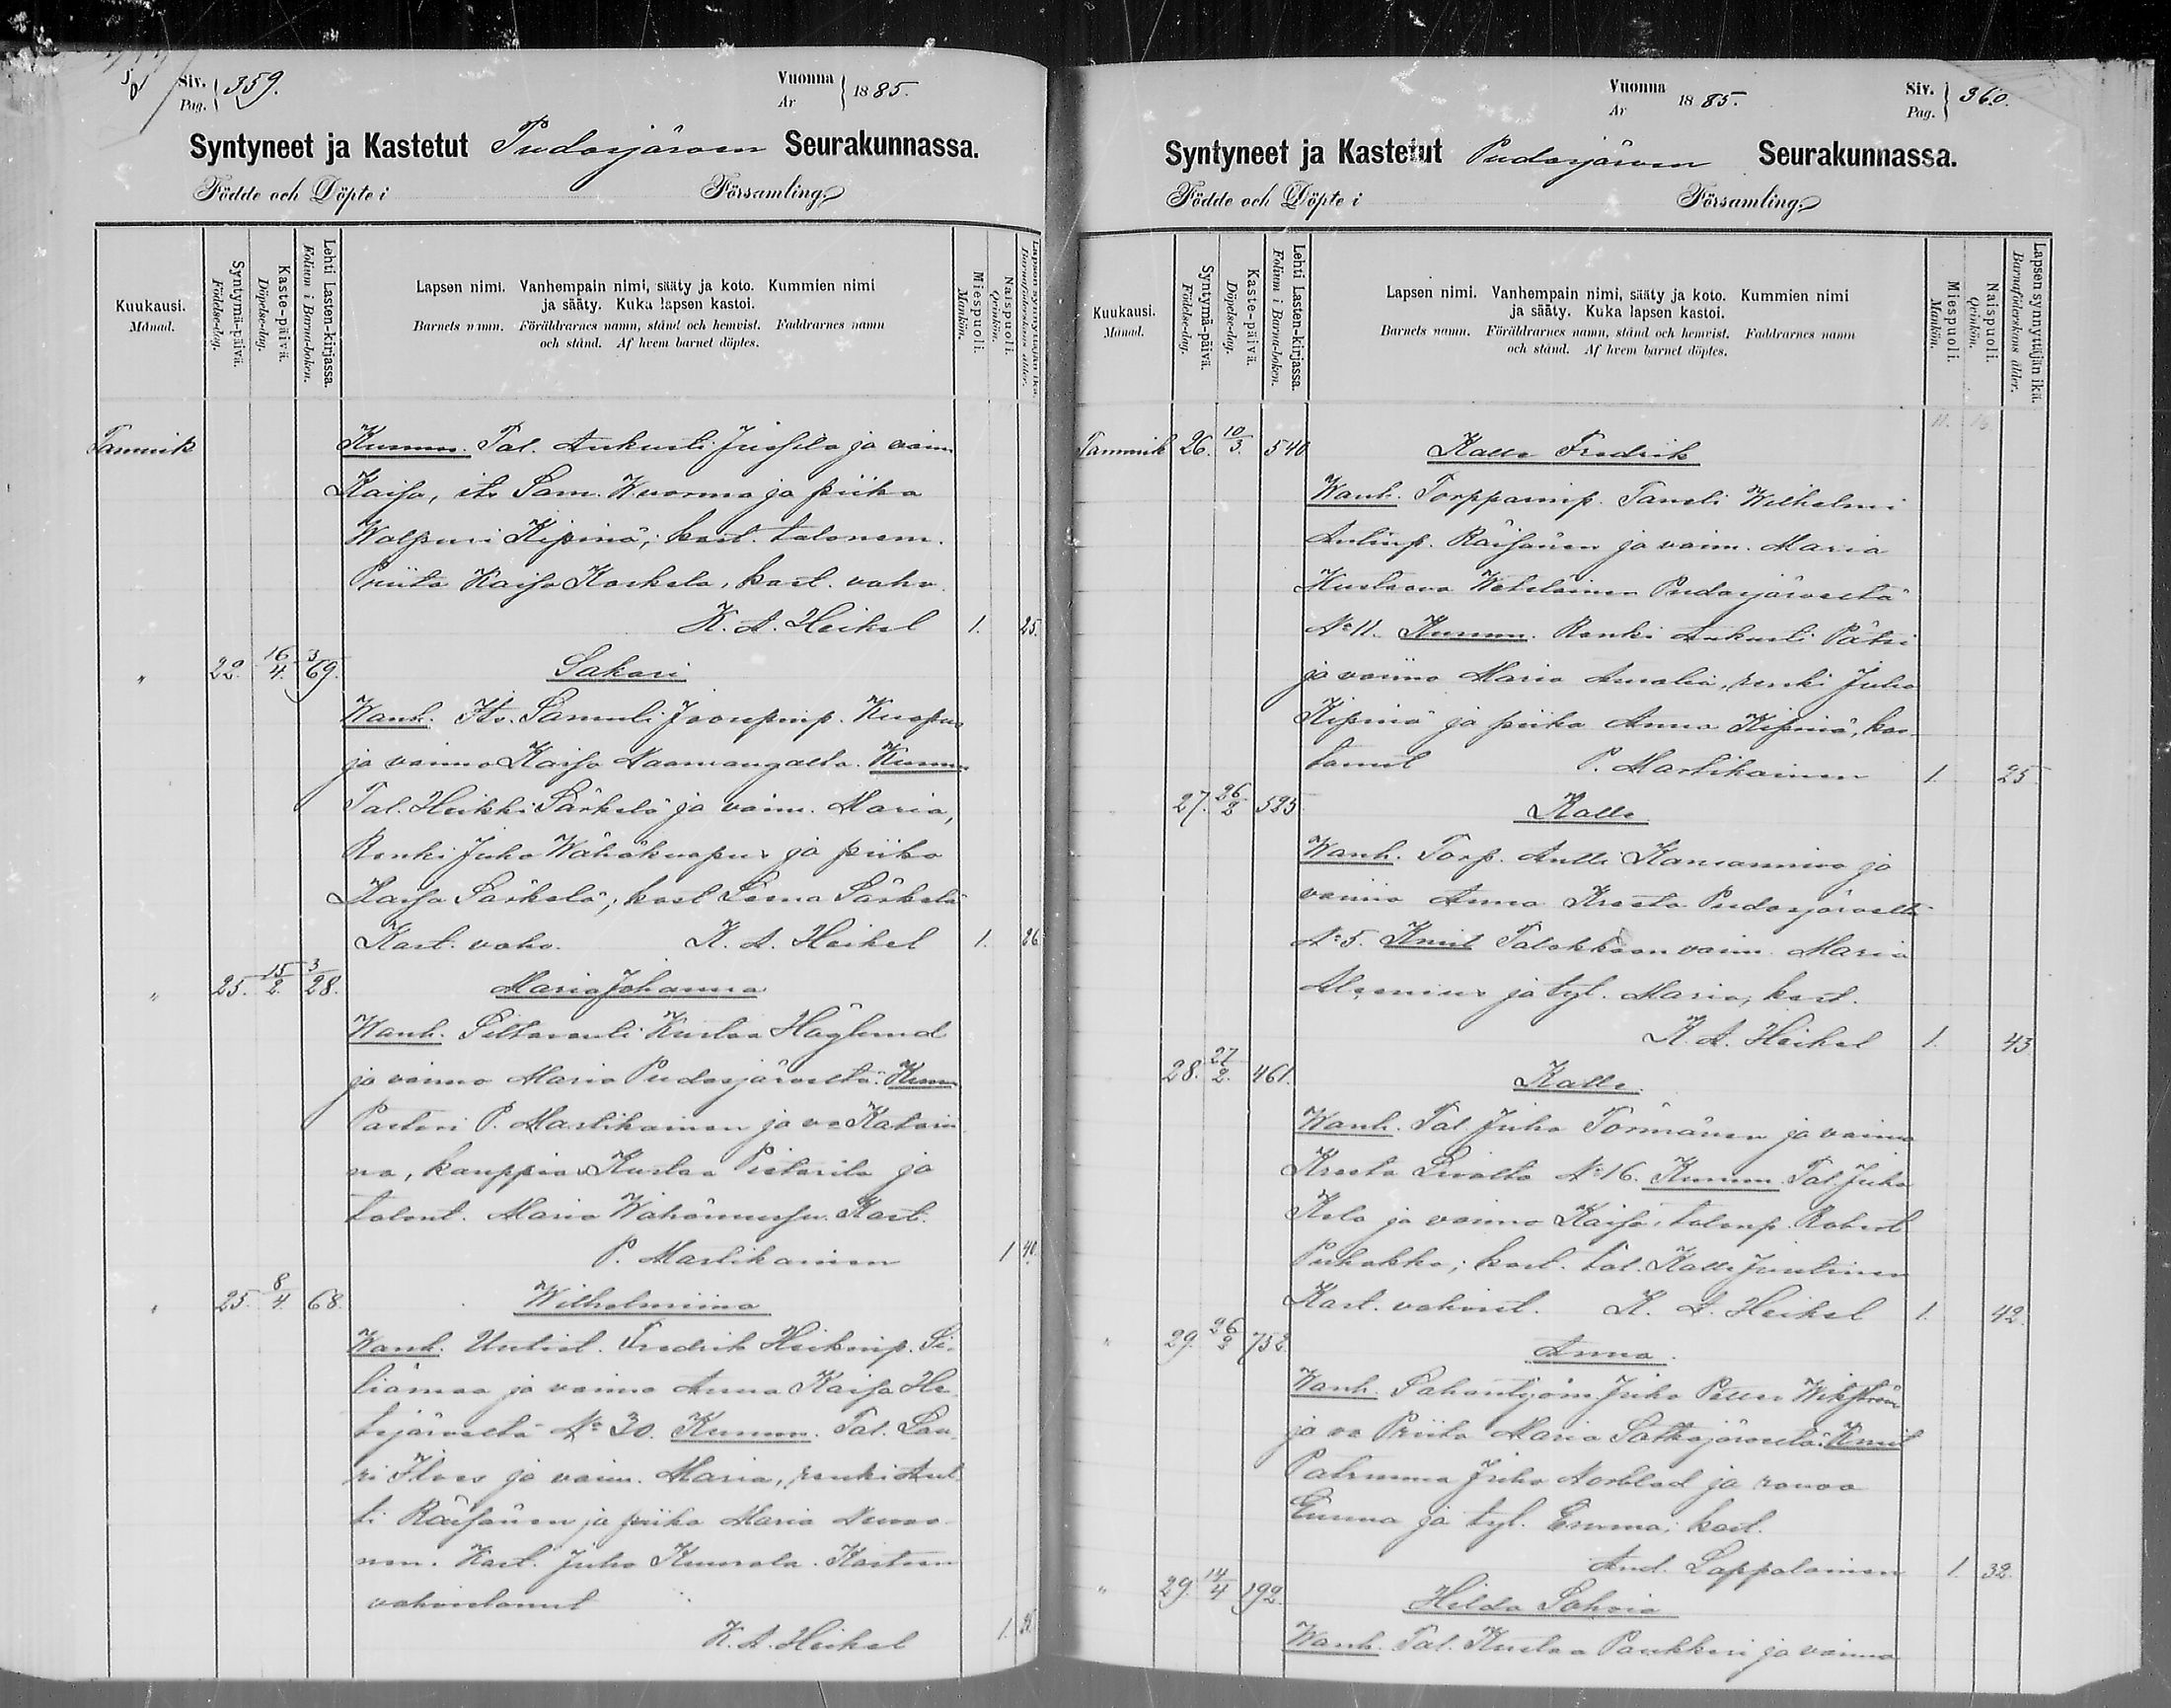 Siv. Pag. 359.
Vuonna År 1885.
Syntyneet ja Kastetut Pudasjärven Seurakunnassa.
Födde och Döpte i Församling.
Kuukausi. Månad.
Syntymä-päivä. Födelse-dag.
Kaste-päivä. Döpelse-dag.
Lehti Lasten-kirjassa. Folium i Barna-boken.
Lapsen nimi. Vanhempain nimi, sääty ja koto. Kummien nimi
ja sääty. Kuka lapsen kastoi.
Barnets namn. Föräldrarnes namn, stånd och hemvist. Faddrarnes namn
och stånd. Af hvem barnet döptes.
Miespuoli. Mankön.
Naispuoli. Qvinkön.
Lapsen synnyttäjän ikä. Barnaföderskans ålder.
Tammik Kumm. Tal. Aukusti Jussila ja vaim.
Kaisa, its. Sam. Wuorma ja piika
Walpuri Kipinä; kast. talonem.
Priita Kaisa Koskela, kast. vahv.
K. A. Heikel 1. 25.
" 22. 16/4. 369. Sakari
Wanh. Its. Samuli Joosepinp. Kuopus
ja vaimo Kaisa Naamangalta. Kumm
Tal. Heikki Särkelä ja vaim. Maria,
Renki Juho Wähäkuopus ja piika
Kaisa Särkelä; kast Liena Särkelä
Kast. vahv. K. A. Heikel 1. 26
" 25. 15/2. 328. Maria Johanna
Wanh. Siltavouti Kustaa Höglund
ja vaimo Maria Pudasjärveltä. Kumm
Pastori P. Martikainen ja va Katarii
na, kauppias Kustaa Pietarila ja
talont. Maria Wähämussu. Kast.
P. Martikainen 1 40.
" 25. 8/4. 68. Wilhelmiina
Wanh. Uutist. Fredrik Heikinp. Si-
liämaa ja vaimo Anna Kaisa He
tejärveltä No 30. Kumm. Tal. Lau-
ri Illves ja vaim. Maria, renki Ant
ti Räisänen ja piika Maria
nen. Kast. Juho Kuurola. Kasteen
vahvistanut
K. A. Heikel 1.
Vuonna År 1885.
Siv. Pag. 360.
Syntyneet ja Kastetut Pudasjärven Seurakunnassa.
Födde och Döpte i Församling.
Kuukausi. Månad.
Syntymä-päivä. Födelse-dag.
Kaste-päivä. Döpelse-dag.
Lehti Lasten-kirjassa. Folium i Barna-boken.
Lapsen nimi. Vanhempain nimi, sääty ja koto. Kummien nimi
ja sääty. Kuka lapsen kastoi.
Barnets namn. Föräldrarnes namn, stånd och hemvist. Faddrarnes namn
och stånd. Af hvem barnet döptes.
Miespuoli. Mankön.
Naispuoli. Qvinkön.
Lapsen synnyttäjän ikä. Barnaföderskans ålder.
Tammik 26. 10/3. 540 Kalle Fredrik
Wanh. Torpparinp. Taneli Wilhelmi
Antinp. Räisänen ja vaim. Maria
Kustaava Weteläinen Pudasjärveltä
No 11. Kumm. Renki Aukusti Pätsi
ja vaimo Maria Amalia, renki Juho
Kipinä ja piika Anna Kipinä, kas-
tanut P. Martikainen 1. 25
27. 26/2 525 Kalle
Wanh. Torp. Antti Kansanniva ja
vaimo Anna Kreeta Pudasjärveltä
No 5. Kmit Talokkaan vaim. Maria
Alcenius ja tyt. Maria, kast.
K. A. Heikel 1. 43
28. 27/2. 461. Kalle.
Wanh. Tal. Juho Törmänen ja vaimo
Kreeta Livolta No 16. Kumm. Tal. Juho
Kela ja vaimo Kaisa, talonp. Robert
Puhakka; kast. tal. Kalle Juutinen
Kast. vahvist. K. A. Heikel 1. 42
" 29. 26/2 752 Anna.
Wanh. Sahantyöm Juho Petter Wikström
ja va Priita Maria Sotkajärveltä. Kmit
Patruuna Juho Norblad ja rouva
Emma ja tyt. Emma; kast.
And. Lappalainen 1. 32.
" 29. 14/4 192. Hilda Sohvia
Wanh. Tal. Kustaa Paukkeri ja vaimo